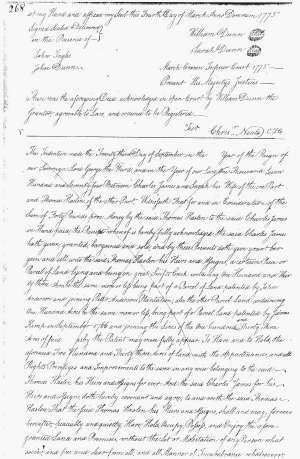 268
set my Hand and affixed my Seal this Fourth Day of March Anno Domini 1775
Signed Sealed & Delivered
in the Presence of
William Dunn
Sarah Dunn
John Ingle
John Dunn
March Craven Inferior Court 1775
Present His Majesty's Justices
Then was the aforegoing Deed acknowledged in open Court by William Dunn the
Grantor agreeable to Law, and ordered to be Registered
Test Chris. Neale Clk
This Indenture made the Twenty third Day of September in the Year of the Reign of
our Sovereign Lord George the Third, and in the Year of our Lord One Thousand Seven
Hundred and Seventy four Between Charles James and Sarah his Wife of the one Part
and Thomas Haslen of the other Part. Witnesseth That for and in Consideration of the
Sum of Forty Pounds Proc. Money by the said Thomas Haslen to the said Charles James
in Hand paid the Receipt whereof is hereby fully acknowledged. He the said Charles James
hath given granted bargained and sold, and by these Presents doth give grant bar-
gain and sell unto the said Thomas Haslen his Heirs and Assigns a certain Piece or
Parcel of Land lying and being on containing One Hundred and Thir
ty three Acres the same more or less being part of a Parcel of Land patented by John
and joining Peter Plantation also the other Parcel Land containing
One Hundred Acres the same more or less, being part of Parcel Land patented by James
Kemp 1766 and joining the Lines of the one hundred Thirty Three
Acres of Land the Patent may more fully appear. To Have and to Hold, the
aforesaid Two Hundred and Thirty three Acres of Land with the Appurtenances and all
Rights Privileges and Improvements to the same in any wise belonging to the said
Thomas Haslen his Heirs and Assigns for ever. And the said Charles James for his
Heirs and Assigns doth hereby covenant and agree to and with the said Thomas
Haslen That the said Thomas Haslen his Heirs and Assigns, shall and may, for ever
hereafter, peaceably and quietly Have, Hold, Occupy, Possess, and Enjoy the afore
granted Land and Premises, without the Let or Molestation of any Person what
soever, and free and clear from all, and all Manner of Incumbrances whatsoever